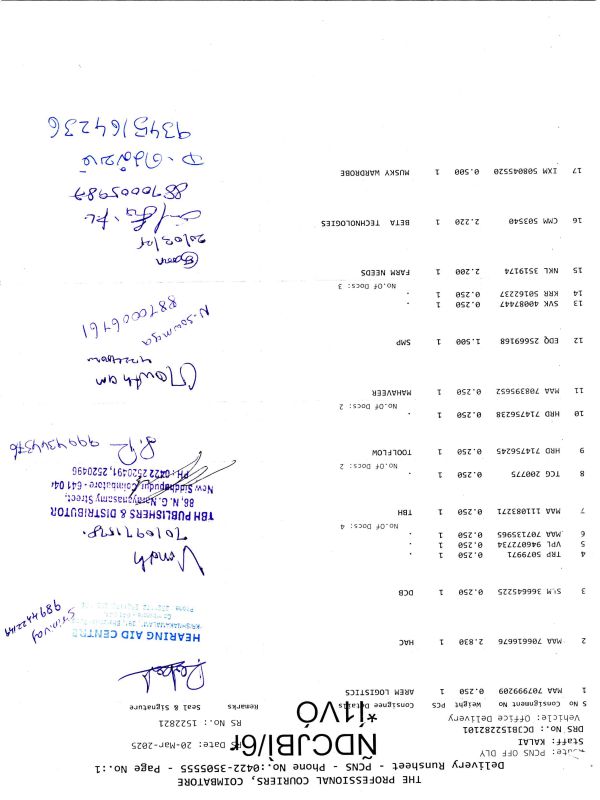 THE PROFESSIONAL COURIERS, COIMBATORE
Delivery Runsheet - PCNS - Phone No.:0422-3505555 - Page No.:1
PCNS OFF DLY
Staff: KALAI
DRS No.: DCJB152282101
Vehicle: Office Delivery
DRS Date: 20-Mar-2025
RS No:: 1522821
S No Consignment No Weight PCS Consignee Details Remarks Seal & Signature
1 MAA 707999209 0.250 1 AREM LOGISTICS
2 MAA 706616676 2.830 1 HAC
HEARING AID CENTRE
3 SLM 366465225 0.250 1 DCB
4 TRP 5079971 0.250 1 .
5 VPL 946072734 0.250 1 .
6 MAA 707135965 0.250 1 .
No.Of Docs: 4
7 MAA 1110813271 0.250 1 TBH
TBH PUBLISHERS & DISTRIBUTOR
86, N. G. Narayanasamy Street,
New Siddhapudur, Coimbatore - 641 04
PH : 0422 2520491, 2520496
8 TCG 200775 0.250 1 .
No.Of Docs: 2
9 HRD 714756245 0.250 1 TOOLFLOW
9994344376
10 HRD 714756238 0.250 1 .
No.Of Docs: 2
11 MAA 708395652 0.250 1 MAHAVEER
Gowtham
12 EDQ 25669168 1.500 1 SMP
N. Sowmya
8870006461
13 SVK 40087447 0.250 1 .
14 KRR 50162237 0.250 1 .
No.Of Docs: 3
15 NKL 3519174 2.200 1 FARM NEEDS
20/03/25
16 CMW 503540 2.220 1 BETA TECHNOLOGIES
8870005987
17 IXM 508045520 0.500 1 MUSKY WARDROBE
9345164236